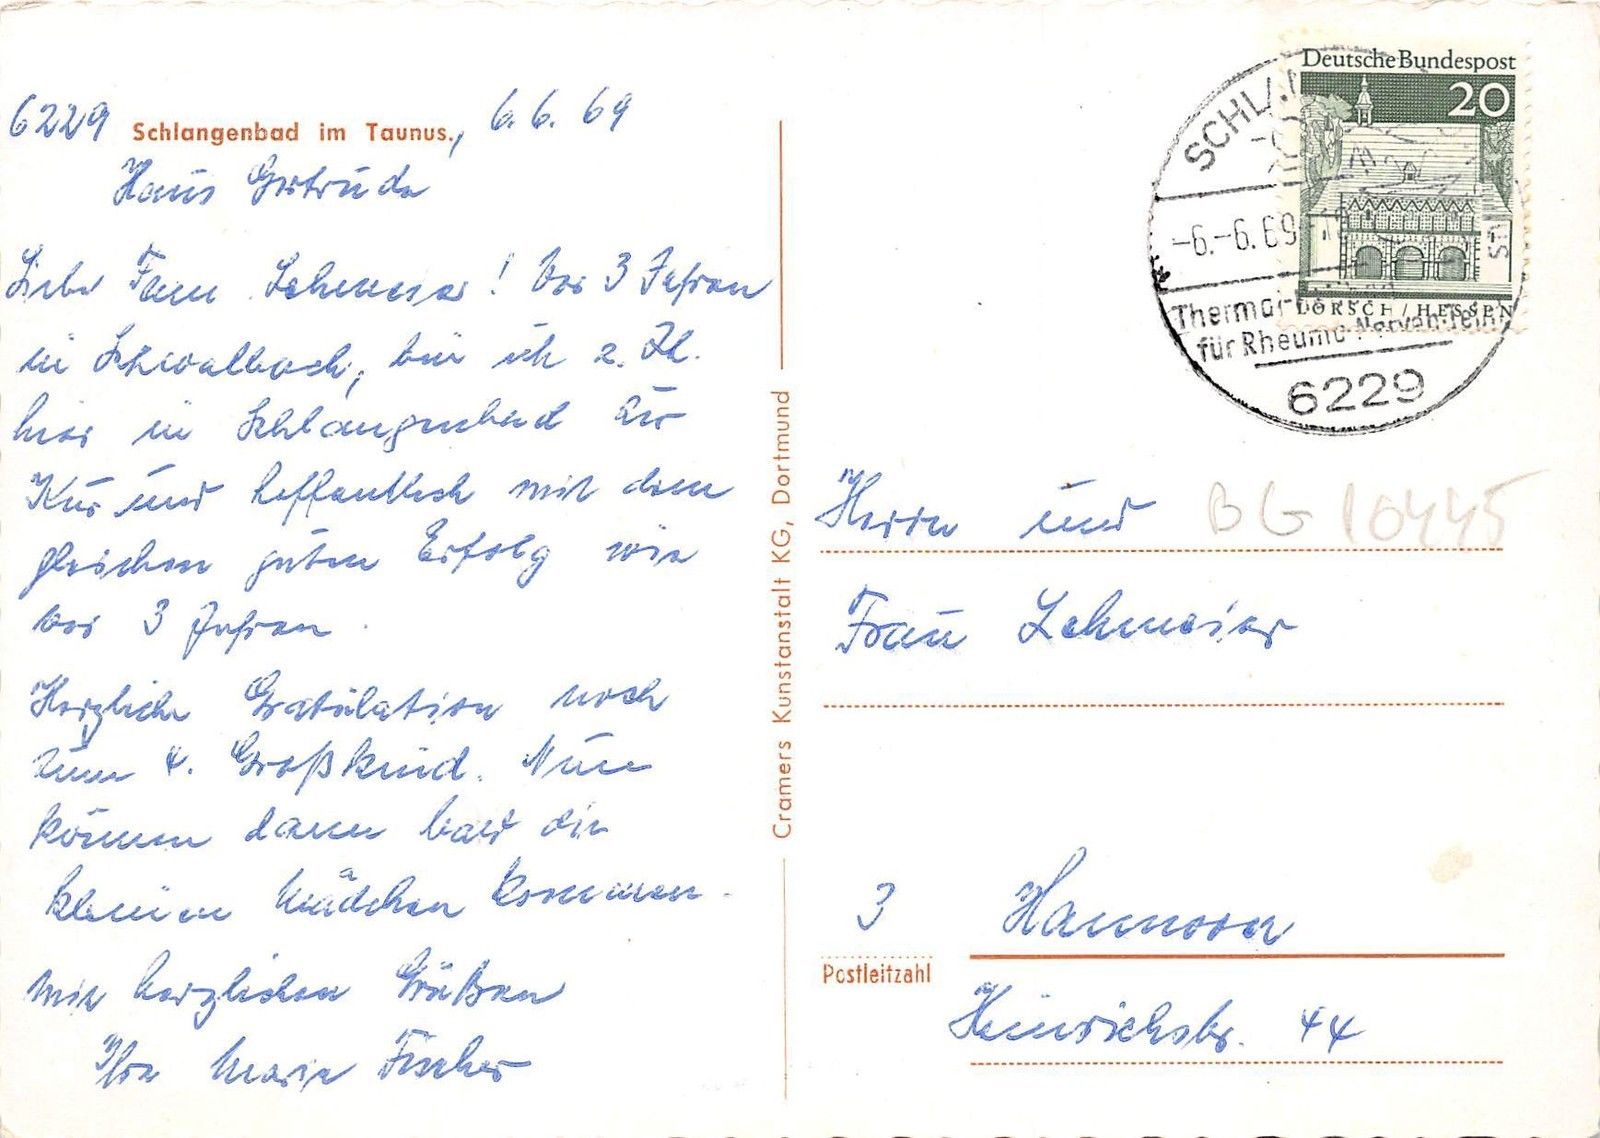 6229 Schlangenbad im Taunus., 6.6.69
Haus Gertrude
Liebe Frau Lehmeier! Vor 3 Jahren
in Schwalbach, bin ich z. Zt.
hier in Schlangenbad zur
Kur und hoffentlich mit dem
gleichen guten Erfolg wie
vor 3 Jahren.
Herzliche Gratulation noch
zum 4. Großkind. Nun
können dann bald die
kleinen Mädchen kommen.
Mit herzlichen Grüßen
Ihre Marie Fischer
Cramers Kunstanstalt KG, Dortmund
Deutsche Bundespost
20
LORSCH/HESSEN
SCHLAN
-6.-6.69
Thermal-
für Rheuma-Nerven-
6229
BG 10445
Herrn und
Frau Lehmeier
3 Hannover
Postleitzahl
Heinrichstr. 44